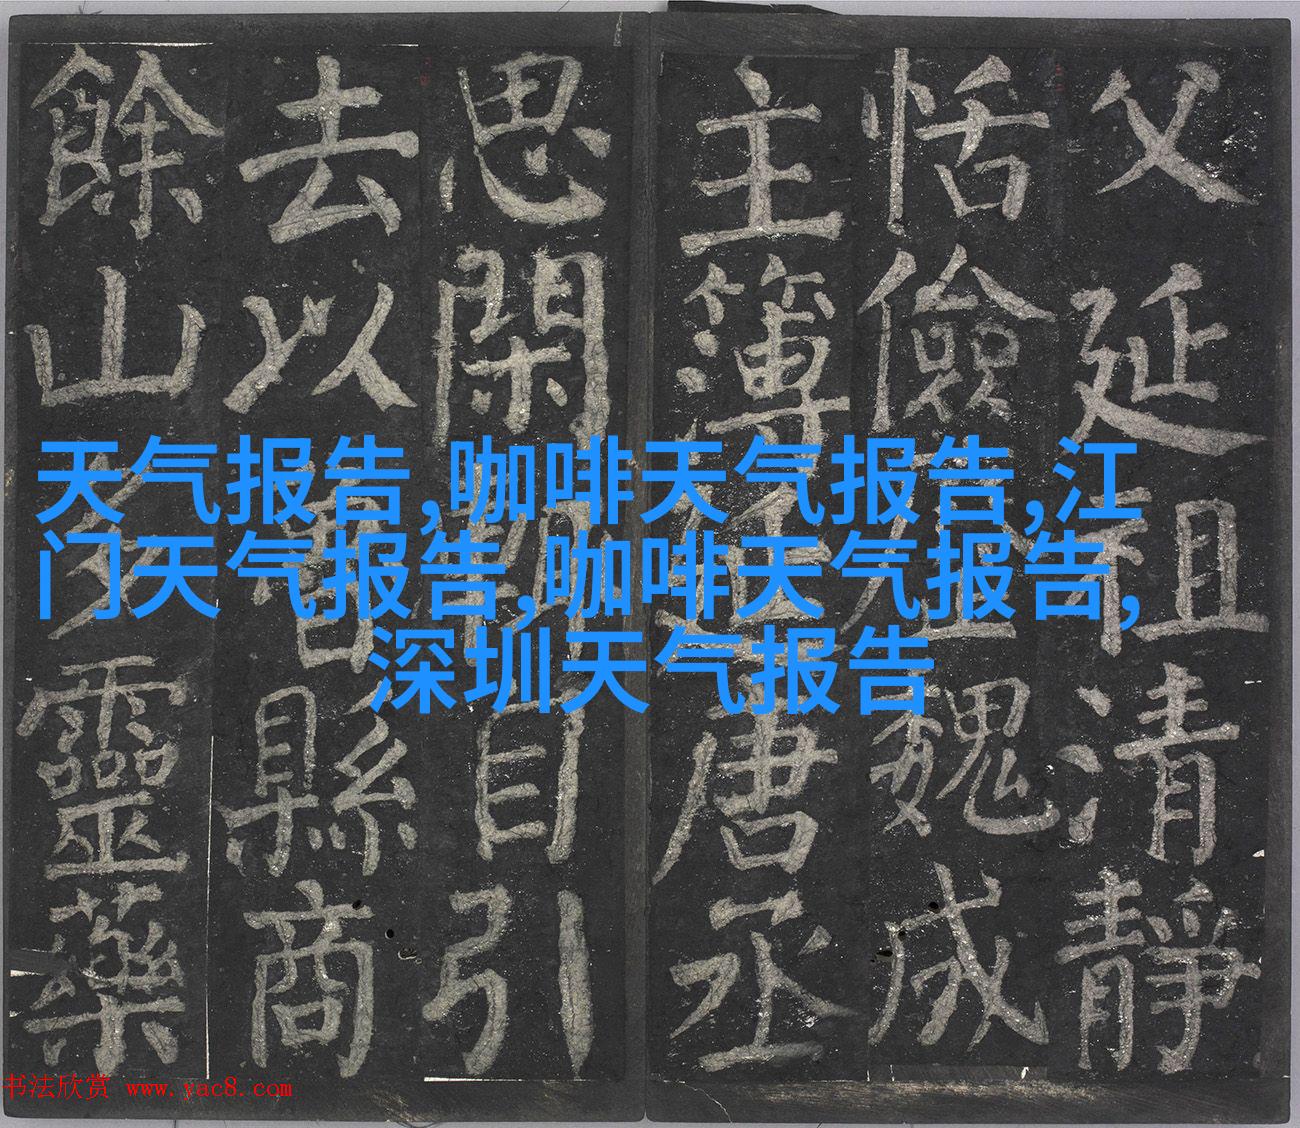 父延祖清靜
恬儉
魏成
主簿
唐丞
思閑
目引
去以
縣商
餘山
靈藥
天气报告,咖啡天气报告,江
门天气报告,咖啡天气报告,
深圳天气报告
书法欣赏 www.yac8.com